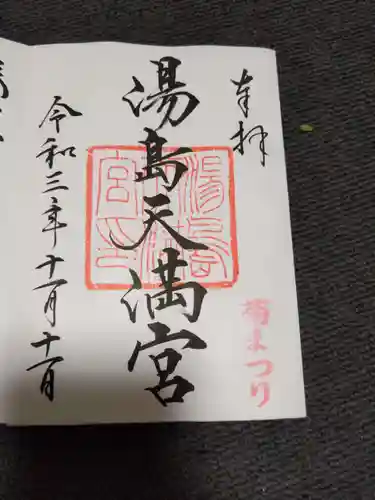 奉拝
菊まつり
湯島天満宮
令和三年十一月十一日